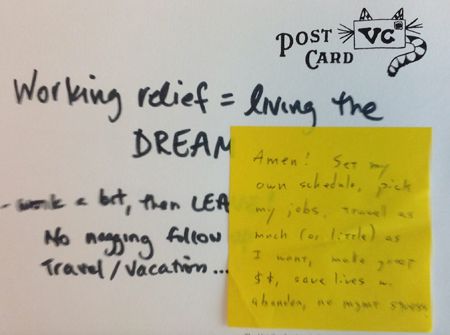 POST
CARD
VC
Working relief = living the
DREAM
- work a bit, then LEA
No nagging follow
Travel/Vacation...
Amen! Set my
own schedule, pick
my jobs, travel as
much (or little) as
I want, make great
$$, save lives w.
abandon, no mgmt stress